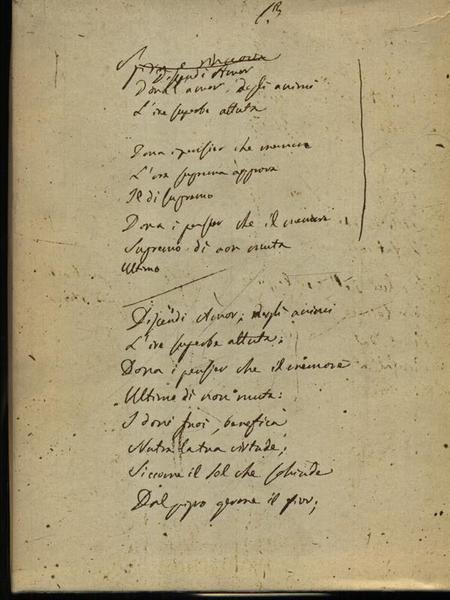 Discendi Amor
Doma amor, degli animi
L'ire superbe attuta
Dona i pensier che memore
L'ora suprema approva
Il di supremo
Dona i pensier che il memore
Supremo di non muta
Ultimo
Discendi Amor; negli animi
L'ire superbe attuta;
Dona i pensier che il memore
Ultimo di non muta:
I doni tuoi benefica
Nutra la tua virtude;
Siccome il sol che schiude
Dal pigro germe il fior;